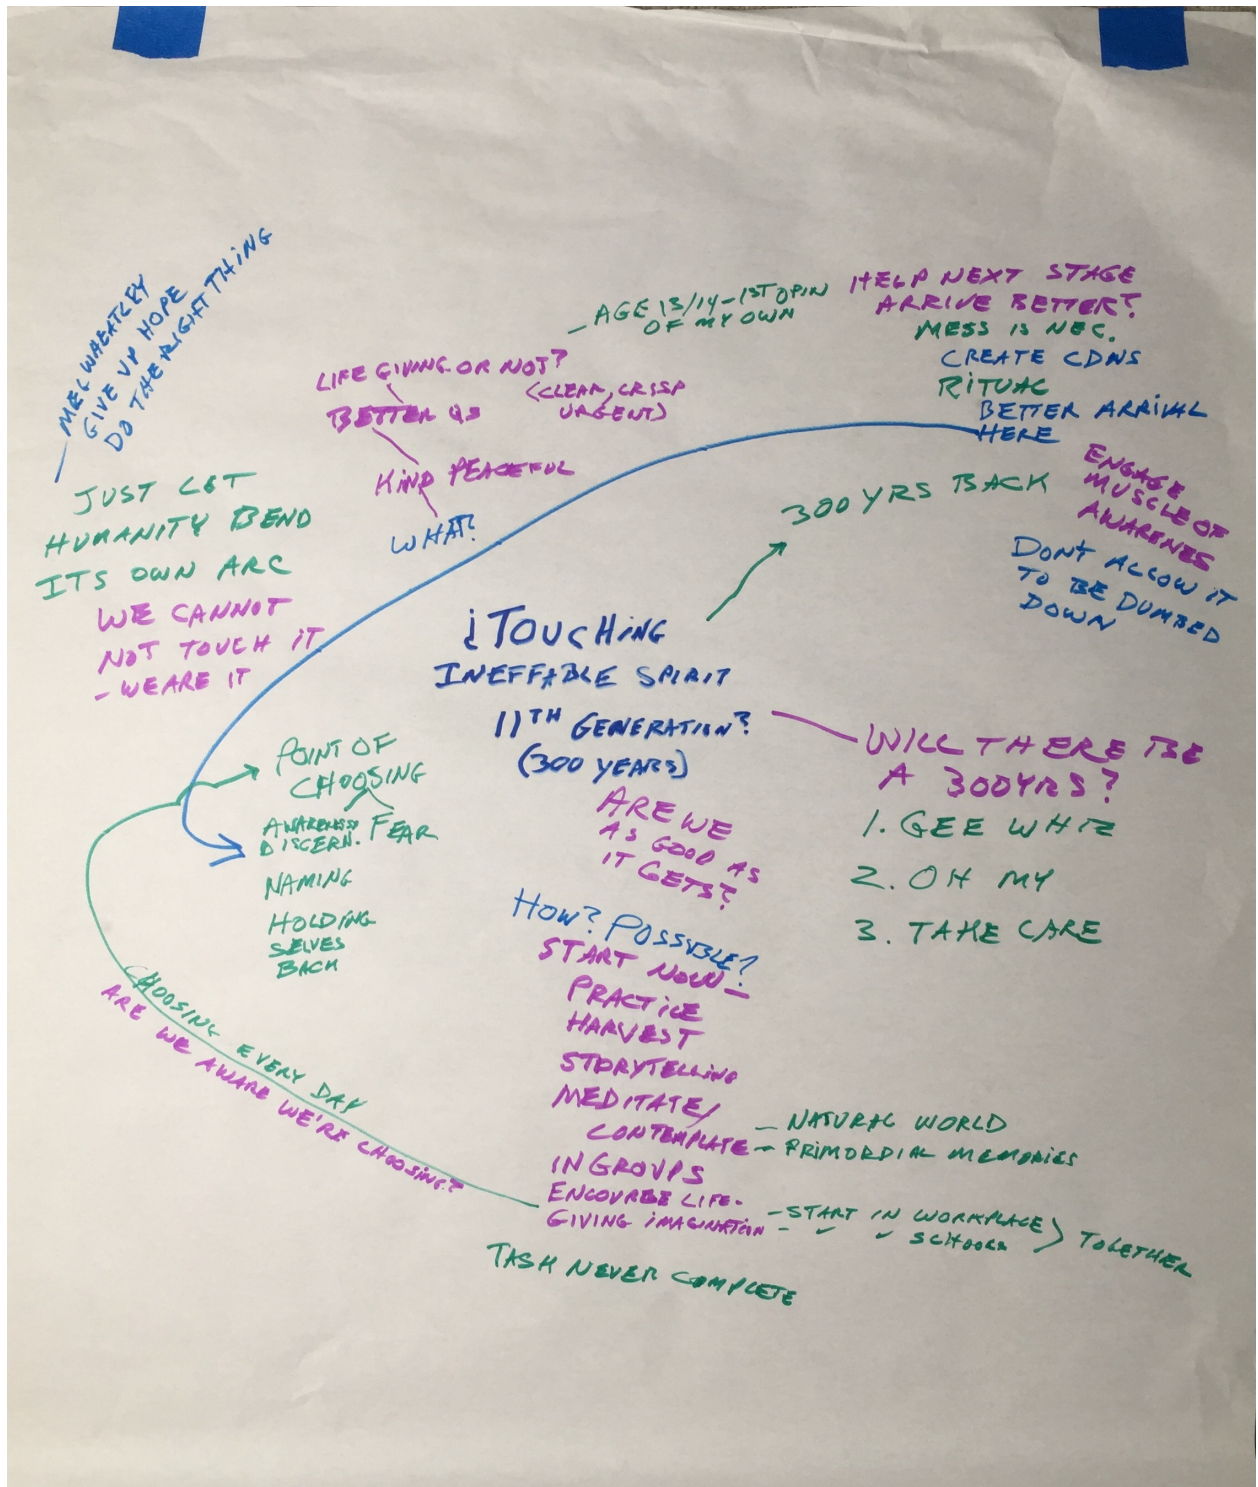 MEG WHEATLEY
GIVE UP HOPE
DO THE RIGHT THING
JUST LET
HUMANITY BEND
ITS OWN ARC
WE CANNOT
NOT TOUCH IT
- WE ARE IT
LIFE GIVING OR NOT?
BETTER QS
(CLEAR, CRISP
URGENT)
KIND PEACEFUL
WHAT?
- AGE 13/14 - 1ST OPIN
OF MY OWN
HELP NEXT STAGE
ARRIVE BETTER?
MESS IS NEC.
CREATE CDNS
RITUAL
BETTER ARRIVAL
HERE
300 YRS BACK
ENGAGE
MUSCLE OF
AWARENES
DON'T ALLOW IT
TO BE DUMBED
DOWN
¿TOUCHING
INEFFABLE SPIRIT
11TH GENERATION?
(300 YEARS)
WILL THERE BE
A 300YRS?
1. GEE WHIZ
2. OH MY
3. TAKE CARE
ARE WE
AS GOOD AS
IT GETS?
POINT OF
CHOOSING
AWARENESS FEAR
DISCERN.
NAMING
HOLDING
SELVES
BACK
HOW? POSSIBLE?
START NOW -
PRACTICE
HARVEST
STORYTELLING
MEDITATE/
CONTEMPLATE
- NATURAL WORLD
- PRIMORDIAL MEMORIES
IN GROUPS
ENCOURAGE LIFE-
GIVING IMAGINATION
- START IN WORKPLACE
- ✓ ✓ SCHOOLS
} TOGETHER
TASK NEVER COMPLETE
CHOOSING EVERY DAY
ARE WE AWARE WE'RE CHOOSING?